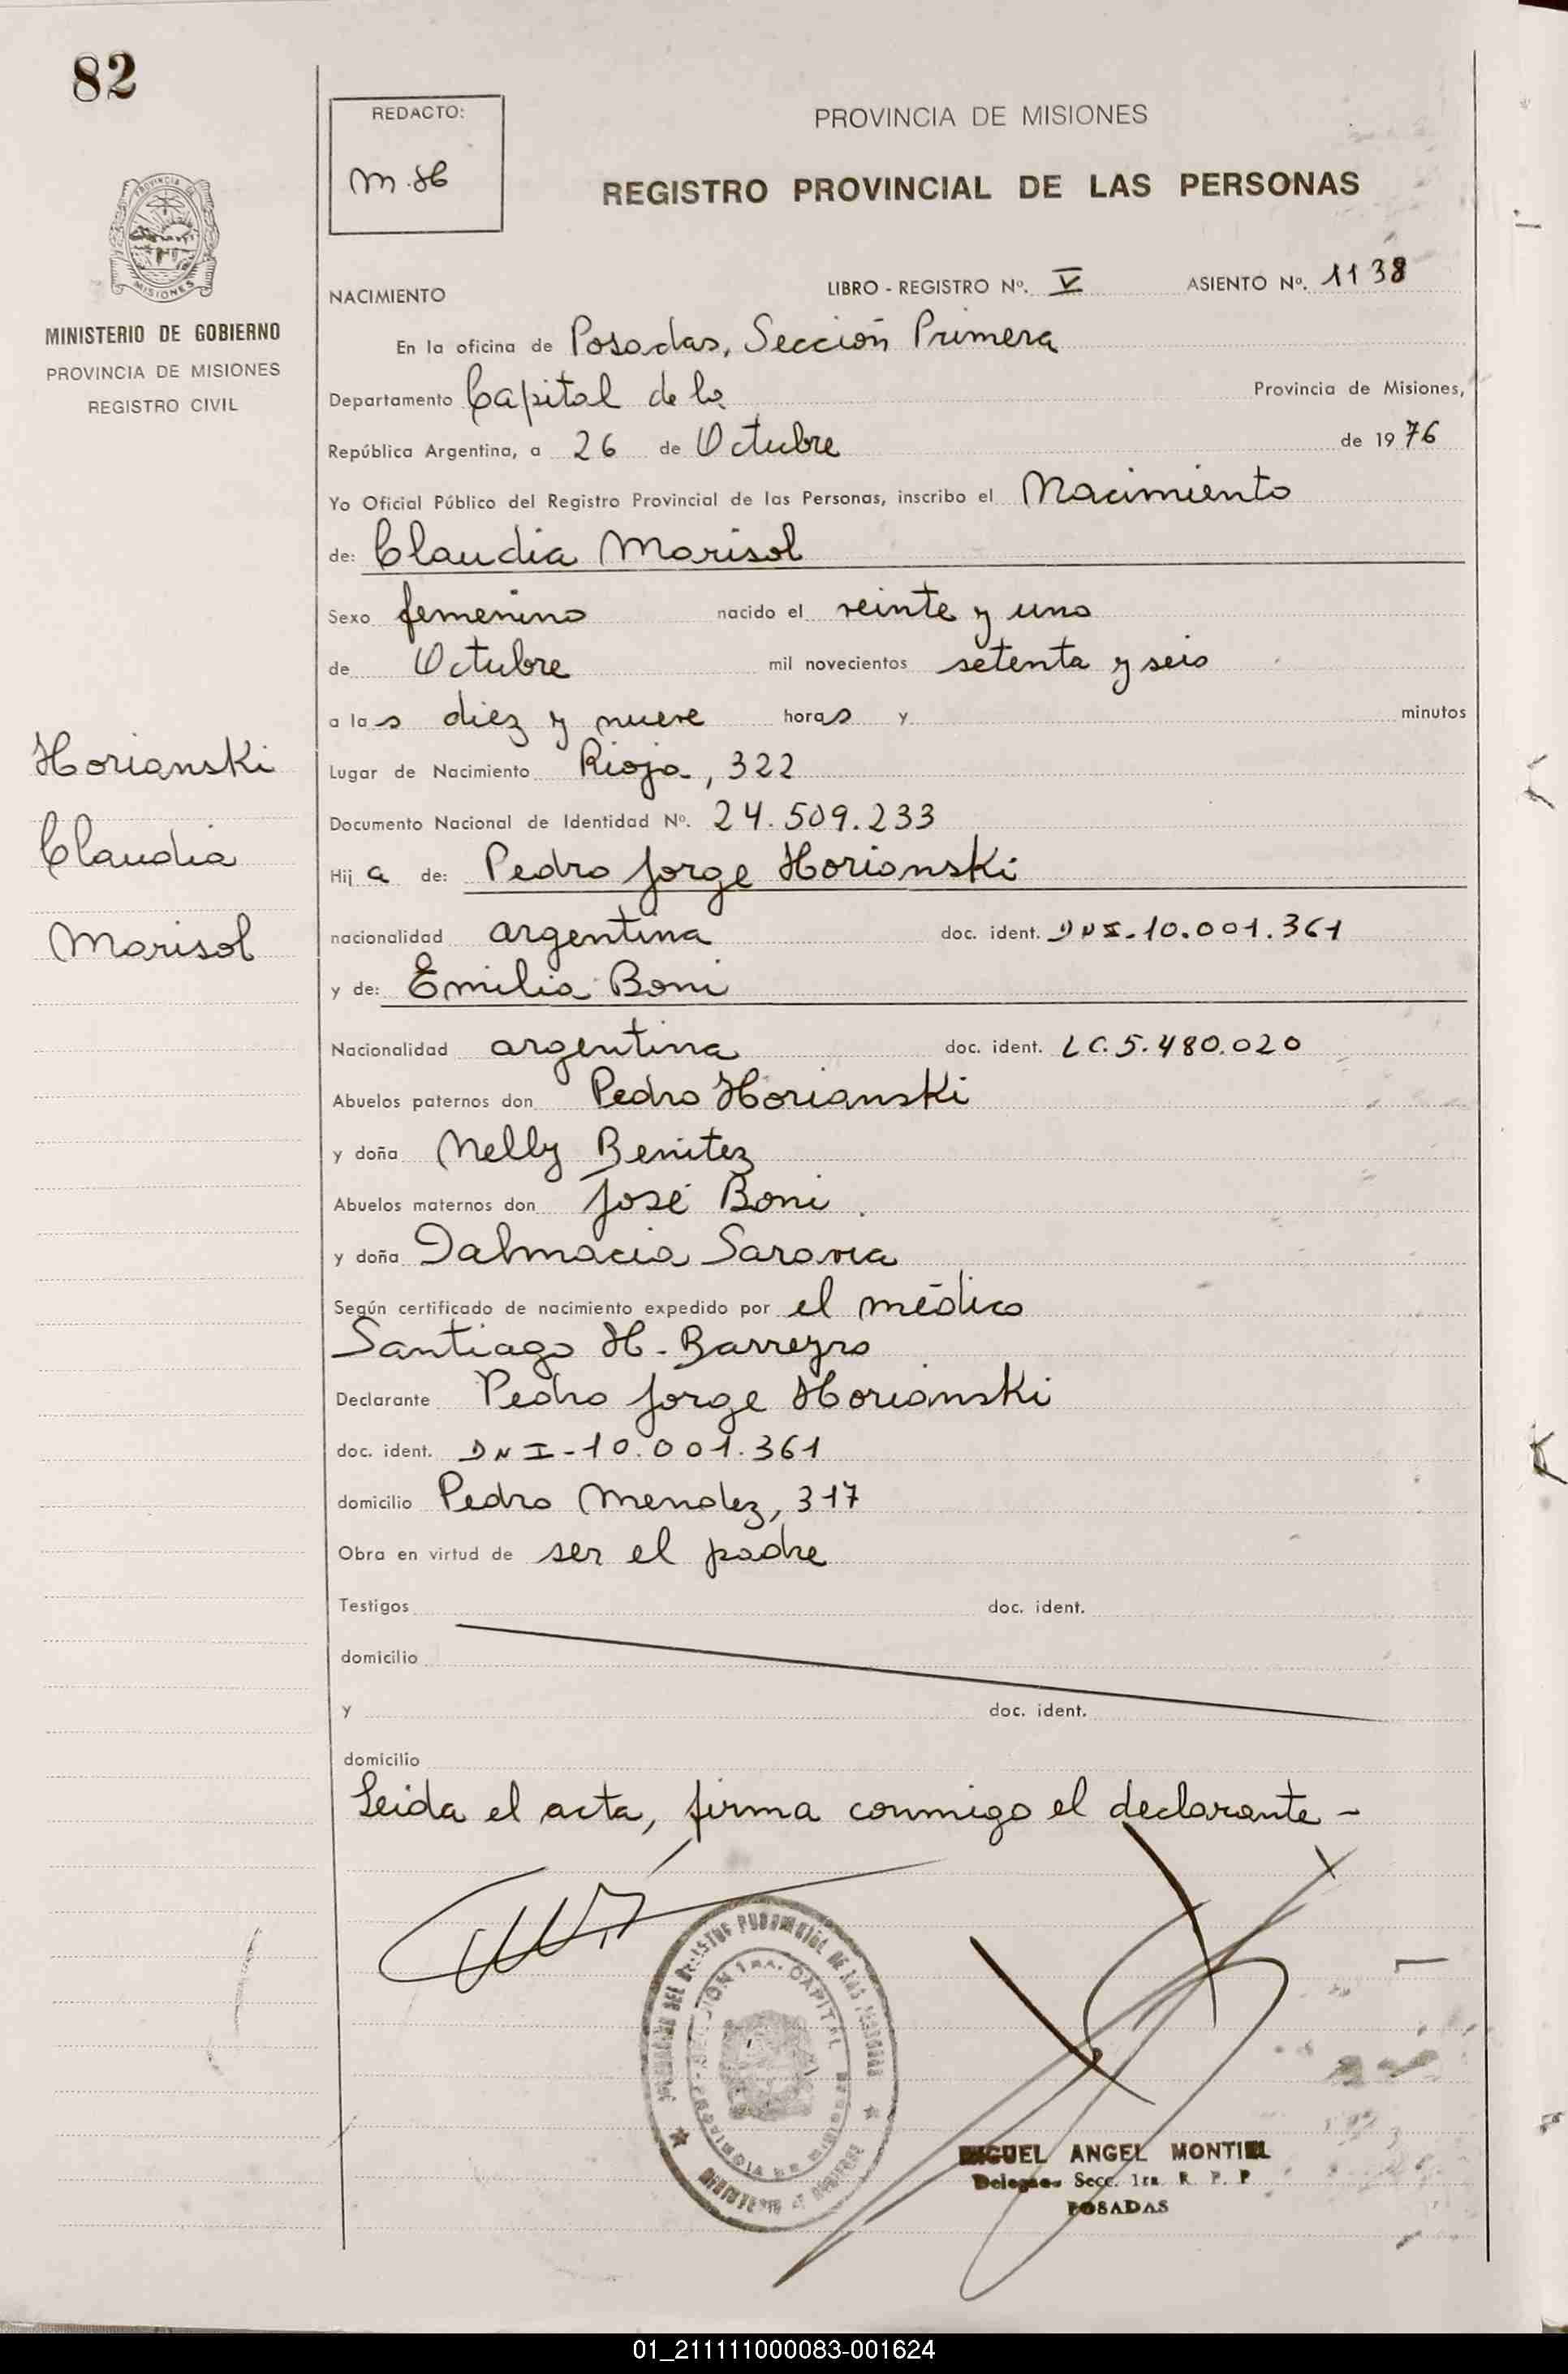 82
REDACTO:
M.H
PROVINCIA DE MISIONES
REGISTRO PROVINCIAL DE LAS PERSONAS
PROVINCIA DE
MISIONES
MINISTERIO DE GOBIERNO
PROVINCIA DE MISIONES
REGISTRO CIVIL
NACIMIENTO LIBRO - REGISTRO Nº. V ASIENTO Nº. 1138
En la oficina de Posadas, Sección Primera
Departamento Capital de la Provincia de Misiones,
República Argentina, a 26 de Octubre de 1976
Yo Oficial Público del Registro Provincial de las Personas, inscribo el Nacimiento
de: Claudia Marisol
Sexo femenino nacido el veinte y uno
de Octubre mil novecientos setenta y seis
a las diez y nueve horas y minutos
Horianski
Claudia
Marisol
Lugar de Nacimiento Rioja, 322
Documento Nacional de Identidad Nº. 24.509.233
Hija de: Pedro Jorge Horianski
nacionalidad argentina doc. ident. DNI-10.001.361
y de: Emilia Boni
Nacionalidad argentina doc. ident. LC.5.480.020
Abuelos paternos don Pedro Horianski
y doña Nelly Benitez
Abuelos maternos don José Boni
y doña Dalmacia Saravia
Según certificado de nacimiento expedido por el médico
Santiago H. Barreyro
Declarante Pedro Jorge Horianski
doc. ident. DNI-10.001.361
domicilio Pedro Mendez, 317
Obra en virtud de ser el padre
Testigos doc. ident.
domicilio
y doc. ident.
domicilio
Leida el acta, firma conmigo el declarante -
SECCION 1ra. CAPITAL
PROVINCIA DE MISIONES
MINISTERIO DE GOBIERNO
MIGUEL ANGEL MONTIEL
Delegado Secc. 1ra R. P. P
POSADAS
01_211111000083-001624